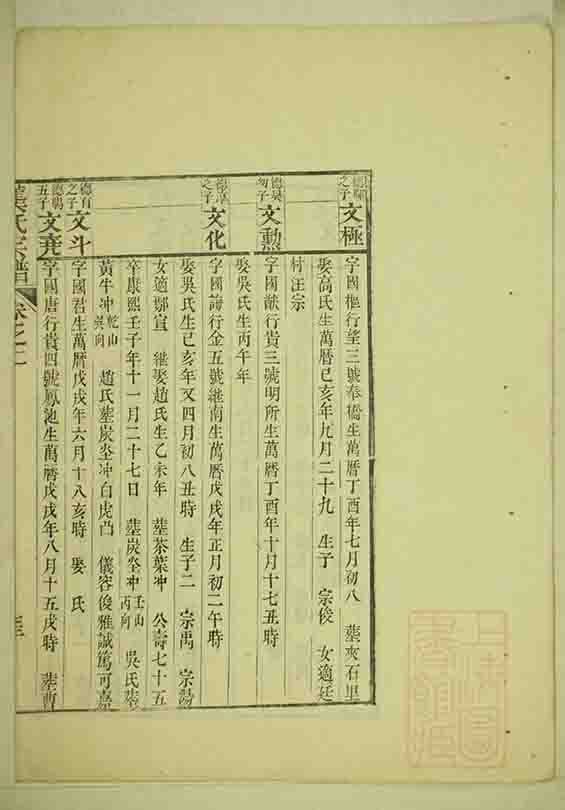 之子 文極 字國樞行望三號奉橋生萬曆丁酉年七月初八 塟夾石里
娶高氏生萬曆己亥年九月二十九 生子 宗俊 女適廷
村汪宗
文勲 字國猷行貴三號明所生萬曆丁酉年十月十七丑時
娶吳氏生丙午年
之子 文化 字國誨行金五號繼南生萬曆戊戌年正月初二午時
娶吳氏生己亥年又四月初八丑時 生子二 宗禹 宗湯
女適鄭宣 繼娶趙氏生乙未年 塟茶葉冲 公壽七十五
卒康熙壬子年十一月二十七日 塟炭坌冲 壬山丙向 吳氏塟
黃牛冲 乾山巽向 趙氏塟炭坌冲白虎凸 儀容俊雅誠篤可嘉
德有之子 文斗 字國君生萬曆戊戌年六月十八亥時 娶 氏
五子 文堯 字國唐行貴四號鳳池生萬曆戊戌年八月十五戌時 塟曹
氏宗譜 卷之二
上海圖書館藏